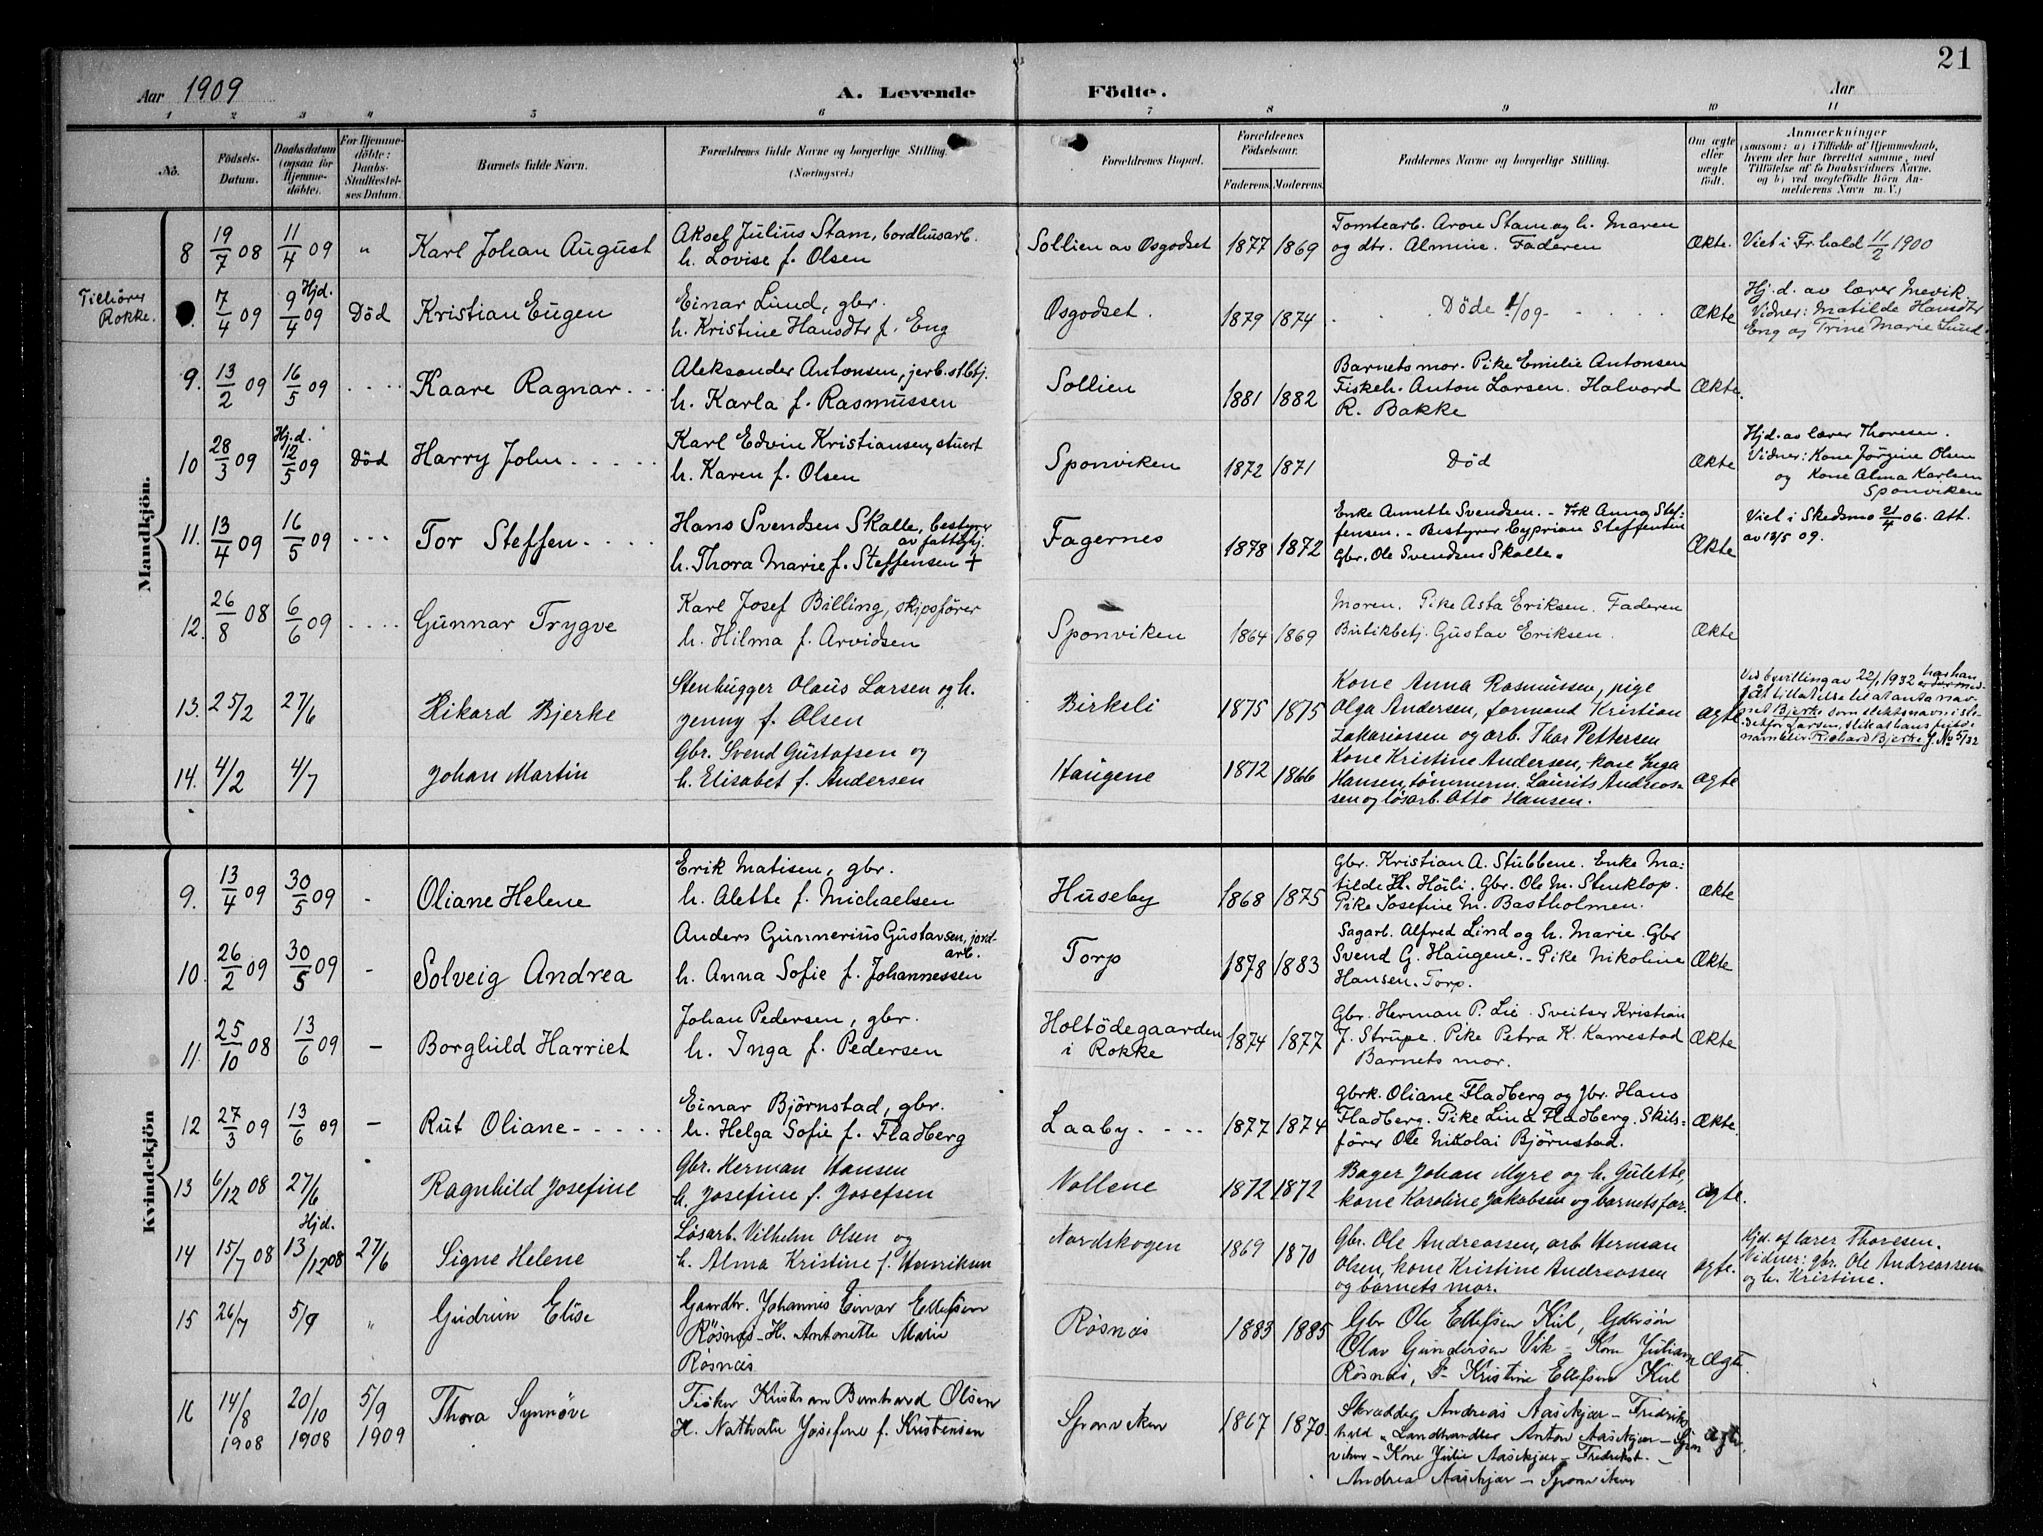 21
Aar 1909 A. Levende Födte. Aar
1 2 3 4 5 6 7 8 9 10 11
No.
Födsels-
Datum.
Daabsdatum
(ogsaa for
Hjemme-
döbte).
For Hjemme-
döbte:
Daabs-
Stadfæstel-
ses Datum.
Barnets fulde Navn.
Forældrenes fulde Navne og borgerlige Stilling.
(Næringsvei.)
Forældrenes Bopæl.
Forældrenes
Födselsaar.
Faderens. Moderens.
Faddernes Navne og borgerlige Stilling.
Om ægte
eller
uægte
födt.
Anmærkninger
(saasom: a) i Tilfælde af Hjemmedaab,
hvem der har forrettet samme, med
Tilföielse af to Daabsvidners Navne.
og b) ved uægtefödte Börn An-
melderens Navn m. V.)
Mandkjön.
8 19/7 08 11/4 09 " Karl Johan August
Aksel Julius Stam, bordhusarb.
h. Lovise f. Olsen
Sollien av Osgodset 1877 1869
Tomtearb. Aron Stam og h. Maren
og dtr. Almine. Faderen
Ækte. Viet i Fr.hald 11/2 1900
Tilhører
Rokke.
7/4 09 Hjd. 9/4 09 Död Kristian Eugen
Einar Lund, gbr.
h. Kristine Hansdtr f. Eng
Osgodset. 1879 1874
Döde /09
Ækte
Hj.d. av lærer Mevik
Vidner: Matilde Hansdtr
Eng og Trine Marie Lund
9. 13/2 09 16/5 09 Kaare Ragnar
Aleksander Antonsen, jerb.stbtj.
h. Karla f. Rasmussen
Sollien 1881 1882
Barnets mor. Pike Emilie Antonsen
Fiskeh. Anton Larsen. Halvord
R. Bakke
Ækte.
10 28/3 09 Hj.d. 12/5 09 Död Harry John
Karl Edvin Kristiansen, stuert
h. Karen f. Olsen
Sponviken 1872 1871
Död
Ækte
Hjd. av lærer Thoresen.
Vidner: Kone Jörgine Olsen
og Kone Alma Karlsen
Sponviken
11. 13/4 09 16/5 09 Tor Steffen
Hans Svendsen Skalle, bestyrer
av fattighj.
h. Thora Marie f. Steffensen +
Fagernes 1878 1872
Enke Annette Svendsen. - Frk Anna Stef-
fensen. - Bestyrer Cyprian Steffensen
Gbr. Ole Svendsen Skalle.
Ækte
Viet i Skedsmo 21/4 06. Att.
av 13/5 09.
12. 26/8 08 6/6 09 Gunnar Trygve
Karl Josef Billing, skipsfører
h. Hilma f. Arvidsen
Sponviken 1864 1869
Moren. Pike Asta Eriksen. Faderen
Butikbetj. Gustav Eriksen.
Ækte
13. 25/2 27/6 Rikard Bjerke
Stenhugger Olaus Larsen og h.
Jenny f. Olsen
Birkeli 1875 1875
Kone Anna Rasmussen, pige
Olga Andersen, formand Kristian
Zakariassen og arb. Thor Pettersen
ægte
Ved bevilling av 22/1 1932 har han
fåt tillatelse til at anta nav-
net Bjerke som slektsnavn i ste-
det for Larsen, slik at hans fulde
navn blir Richard Bjerke J. No 5/32
14. 4/2 4/7 Johan Martin
Gbr. Svend Gustafsen og
h. Elisabet f. Andersen
Haugene 1872 1866
Kone Kristine Andersen, kone Inga
Hansen, tömmerm. Laurits Andreas-
sen og løsarb. Otto Hansen.
ægte
Kvindekjön
9. 13/4 09 30/5 09 - Oliane Helene
Erik Matisen, gbr.
h. Alette f. Michaelsen
Huseby 1868 1875
Gbr. Kristian A. Stubbene. Enke Ma-
tilde H. Höili. Gbr. Ole M. Stenklop.
Pike Josefine M. Bastholmen.
Ækte
10. 26/2 09 30/5 09 - Solveig Andrea
Anders Gunnerius Gustavsen, jord-
arb.
h. Anna Sofie f. Johannessen
Torp 1878 1883
Sagarb. Alfred Lind og h. Marie. Gbr
Svend G. Haugene. - Pike Nikoline
Hansen. Torp.
Ækte
11. 25/10 08 13/6 09 - Borghild Harriet
Johan Pedersen, gbr.
h. Inga f. Pedersen
Holtödegaarden
i Rokke
1874 1877
Gbr. Herman P. Lie. Sveitser Kristian
J. Strupe. Pike Petra K. Karrestad
Barnets mor.
Ækte
12 27/3 09 13/6 09 - Rut Oliane
Einar Björnstad, gbr.
h. Helga Sofie f. Fladberg
Laaby 1877 1874
Gbrk. Oliane Fladberg og Gbr. Hans
Fladberg. Pike Lina Fladberg. Skibs-
fører Ole Nikolai Björnstad.
Ækte.
13 6/12 08 27/6 Ragnhild Josefine
Gbr. Herman Hansen
h. Josefine f. Josefsen
Vollene 1872 1872
Bager Johan Myre og h. Gulette,
kone Karoline Jakobsen og barnets far.
ægte.
14 15/7 08 Hjd. 13/12 08 27/6 Signe Helene
Løsarb. Vilhelm Olsen og
h. Alma Kristine f. Henriksen
Nordskogen 1869 1870
Gbr. Ole Andreassen, arb Herman
Olsen, kone Kristine Andreassen
og barnets mor.
ægte.
Hjd. af lærer Thoresen.
Vidner: gbr. Ole Andreassen
og h. Kristine.
15 26/7 5/9 " Gudrun Elise
Gaardbr. Johannis Einar Ellefsen
Røsnæs - H. Antonette Marie
Røsnæs
Røsnæs 1883 1885
Gbr Ole Ellefsen Kul,
Olav Gundersen Vik - Kone Juliane
Røsnæs, Kristine Ellefsen Kul
Ægte.
16 14/8 1908 20/10 1908 5/9 1909 Thora Synnöve
Fisker Kristian Bernhard Olsen
H. Nathalie Josefine f. Kristensen
Sponviken 1867 1870
Skrædder Andreas Aasekjær - Fredriks-
hald " Landhandler Anton Aasekjær - Spon
viken - Kone Julie Aasekjær - Fredrikst. -
Andrea Aasekjær - Sponviken
ægte.